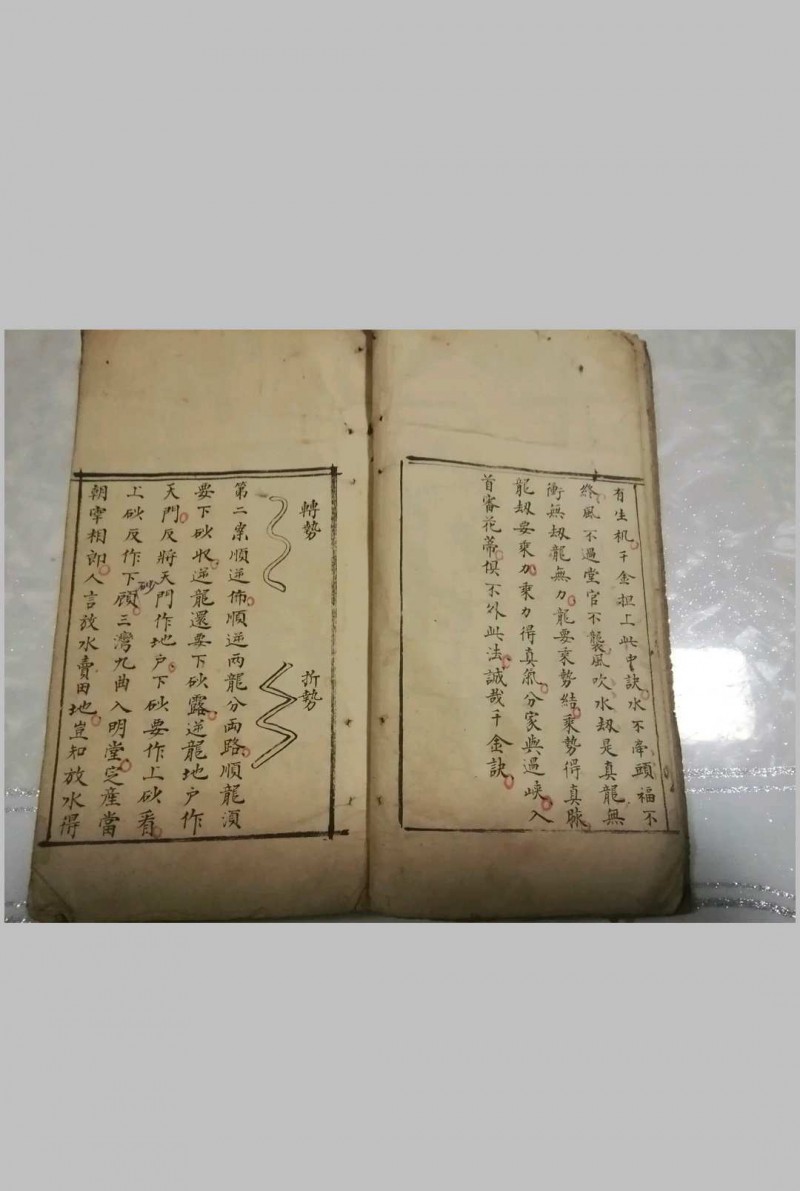 有生机千金担上此中訣水不牽頭福不
終風不過堂官不襲風吹水刼是真龍無
衝無刼龍無力龍要乘勢結乘勢得真脉
龍刼要乘力乘力得真氣分家與過峽入
首審花蒂俱不外此法誠哉千金訣
轉勢
折勢
第二案順逆佈順逆両龍分両路順龍須
要下砂收逆龍還要下砂露逆龍地户作
天門反將天門作地户下砂要作上砂看
上砂反作下砂顧三灣九曲入明堂定產當
朝宰相郎人言放水賣田地豈知放水得